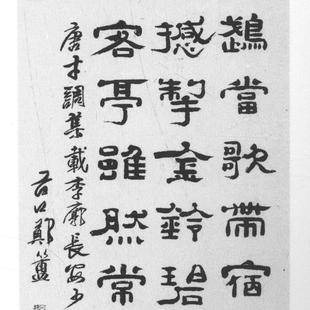 鵡當歌帶宿
撼掣金鈴碧
客亭雖然常
唐才調集載李廓長安少
谷口鄭簠